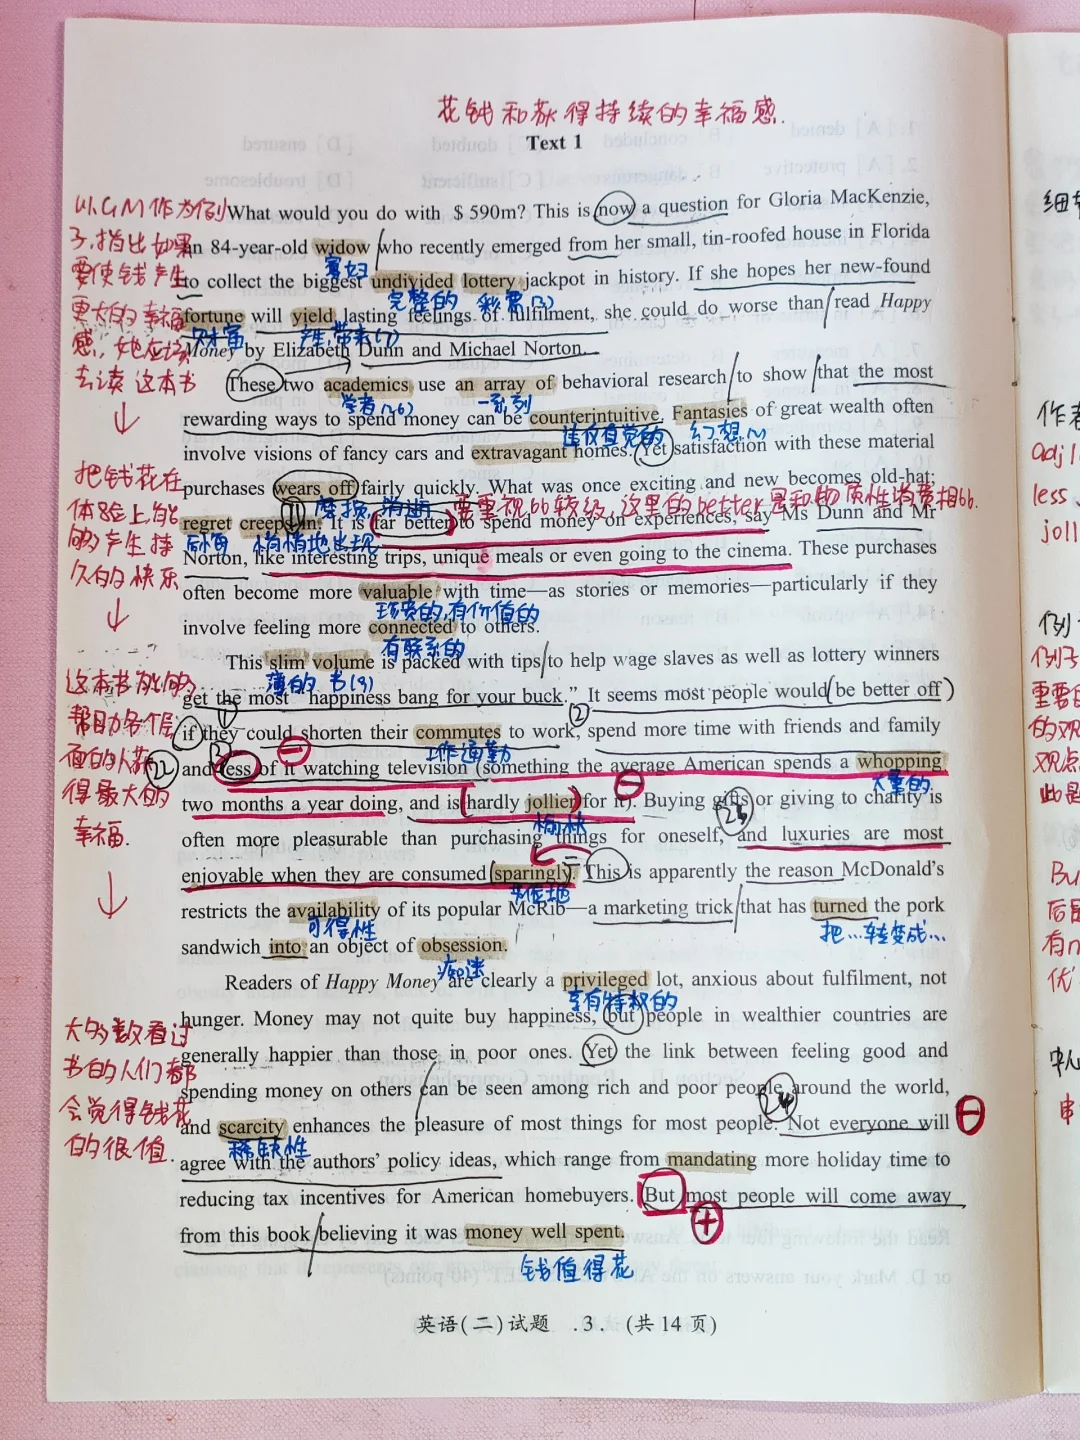 花钱和获得持续的幸福感.
Text 1
以G.M作为例
子,指出如果
要使钱产生
更大的幸福
感,她应该
去读这本书
↓
把钱花在
体验上,能
够产生持
久的快乐
↓
这本书能够
帮助各个层
面的人获
得最大的
幸福.
↓
大多数看过
书的人们都
会觉得钱花
的很值.
What would you do with $ 590m? This is now a question for Gloria MacKenzie,
an 84-year-old widow who recently emerged from her small, tin-roofed house in Florida
寡妇
to collect the biggest undivided lottery jackpot in history. If she hopes her new-found
完整的 彩票(n)
fortune will yield lasting feelings of fulfilment, she could do worse than read Happy
财富 产生,带来(v)
Money by Elizabeth Dunn and Michael Norton.
These two academics use an array of behavioral research to show that the most
学者(n,6) 一系列
rewarding ways to spend money can be counterintuitive. Fantasies of great wealth often
违反直觉的 幻想(n)
involve visions of fancy cars and extravagant homes. Yet satisfaction with these material
purchases wears off fairly quickly. What was once exciting and new becomes old-hat;
磨损,消逝 要重视bb较级,这里的better是和物质性消费相bb.
regret creeps in. It is far better to spend money on experiences, say Ms Dunn and Mr
后悔 悄悄地出现
Norton, like interesting trips, unique meals or even going to the cinema. These purchases
often become more valuable with time—as stories or memories—particularly if they
珍贵的,有价值的
involve feeling more connected to others.
有联系的
This slim volume is packed with tips to help wage slaves as well as lottery winners
薄的 书(9)
get the most “happiness bang for your buck.” It seems most people would be better off
① ②
if they could shorten their commutes to work, spend more time with friends and family
工作通勤
22
and less of it watching television (something the average American spends a whopping
大量的
two months a year doing, and is hardly jollier for it). Buying gifts or giving to charity is
愉快 23
often more pleasurable than purchasing things for oneself, and luxuries are most
enjoyable when they are consumed sparingly. This is apparently the reason McDonald’s
节俭地
restricts the availability of its popular McRib—a marketing trick that has turned the pork
可得性 把…转变成…
sandwich into an object of obsession.
痴迷
Readers of Happy Money are clearly a privileged lot, anxious about fulfilment, not
享有特权的
hunger. Money may not quite buy happiness, but people in wealthier countries are
generally happier than those in poor ones. Yet the link between feeling good and
spending money on others can be seen among rich and poor people around the world,
24
and scarcity enhances the pleasure of most things for most people. Not everyone will
稀缺性
agree with the authors’ policy ideas, which range from mandating more holiday time to
reducing tax incentives for American homebuyers. But most people will come away
from this book believing it was money well spent.
钱值得花
英语(二)试题 .3. (共14页)
作者
adj
less
joll
例
例子
重要
的观
观点
此是
Bu
后是
有n
优